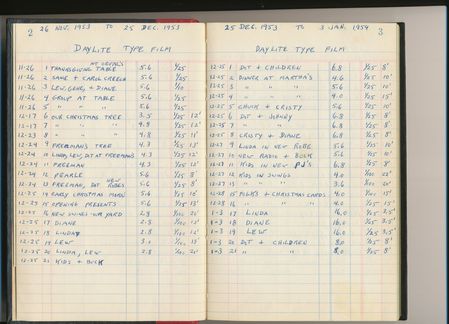 2 26 NOV. 1953 TO 25 DEC. 1953
DAYLITE TYPE FILM
11-26 1 THANKSGIVING TABLE AT ORVAL'S 5.6 1/25
11-26 2 SAME + CAROL CREECH 5.6 1/25
11-26 3 LEW, GENE, + DIANE 5.6 1/10
11-26 4 GROUP AT TABLE 5.6 1/25
11-26 5 " " " 5.6 1/25
12-17 6 OUR CHRISTMAS TREE 3.5 1/25 12'
12-17 7 " " " 4.8 1/25 12'
12-23 8 " " " 4.8 1/25 11'
12-24 9 FREEMAN'S TREE 4.3 1/25 13'
12-24 10 LINDA, LEW, DIT AT FREEMANS 4.3 1/25 12'
12-24 11 FREEMAN 4.3 1/25 12'
12-24 12 PEARLE 5.6 1/25 8'
12-24 13 FREEMAN, DIT NEW ROBES 5.6 1/25 8'
12-25 14 EARLY CHRISTMAS MORN. 5.6 1/25 10'
12-25 15 OPENING PRESENTS 5.6 1/25 13'
12-25 16 NEW SWINGS OUR YARD 2.8 1/100 20'
12-25 17 DIANE 2.8 1/100 12'
12-25 18 LINDA 2.8 1/100 12'
12-25 19 LEW 1/100 15'
12-25 20 LINDA, LEW 2.8 20'
12-25 21 KIDS + BUCK
25 DEC. 1953 TO 3 JAN. 1954 3
DAYLITE TYPE FILM
12-25 1 DIT + CHILDREN 6.8 1/25 8'
12-25 2 DINNER AT MARTHA'S 4.6 1/25 10'
12-25 3 " " " 5.6 1/25 10'
12-25 4 " " " 4.0 1/25 15'
12-25 5 CHUCK + CRISTY 5.6 1/25 10'
12-25 6 DIT + JOHNNY 6.8 1/25 8'
12-25 7 " " 6.8 1/25 8'
12-25 8 CRISTY + DIANE 6.8 1/25 8'
12-27 9 LINDA IN NEW ROBE 5.6 1/25 9'
12-27 10 NEW RADIO + BUCK 5.6 1/25 10'
12-27 11 KIDS IN NEW PJ'S 6.8 1/25 8'
12-27 12 KIDS IN SWINGS 4.0 1/100 20'
12-27 13 " " " 3.6 1/100 20'
12-28 15 FOLKS + CHRISTMAS CARDS 4.0 1/25 15'
12-28 16 " " " 4.0 1/25 15'
1-3 17 LINDA 16.0 1/25 3.5'
1-3 18 DIANE 16.0 1/25 3.5'
1-3 19 LEW 16.0 1/25 3.5'
1-3 20 DIT + CHILDREN 8.0 1/25 8'
1-3 21 " " " 8.0 1/25 8'